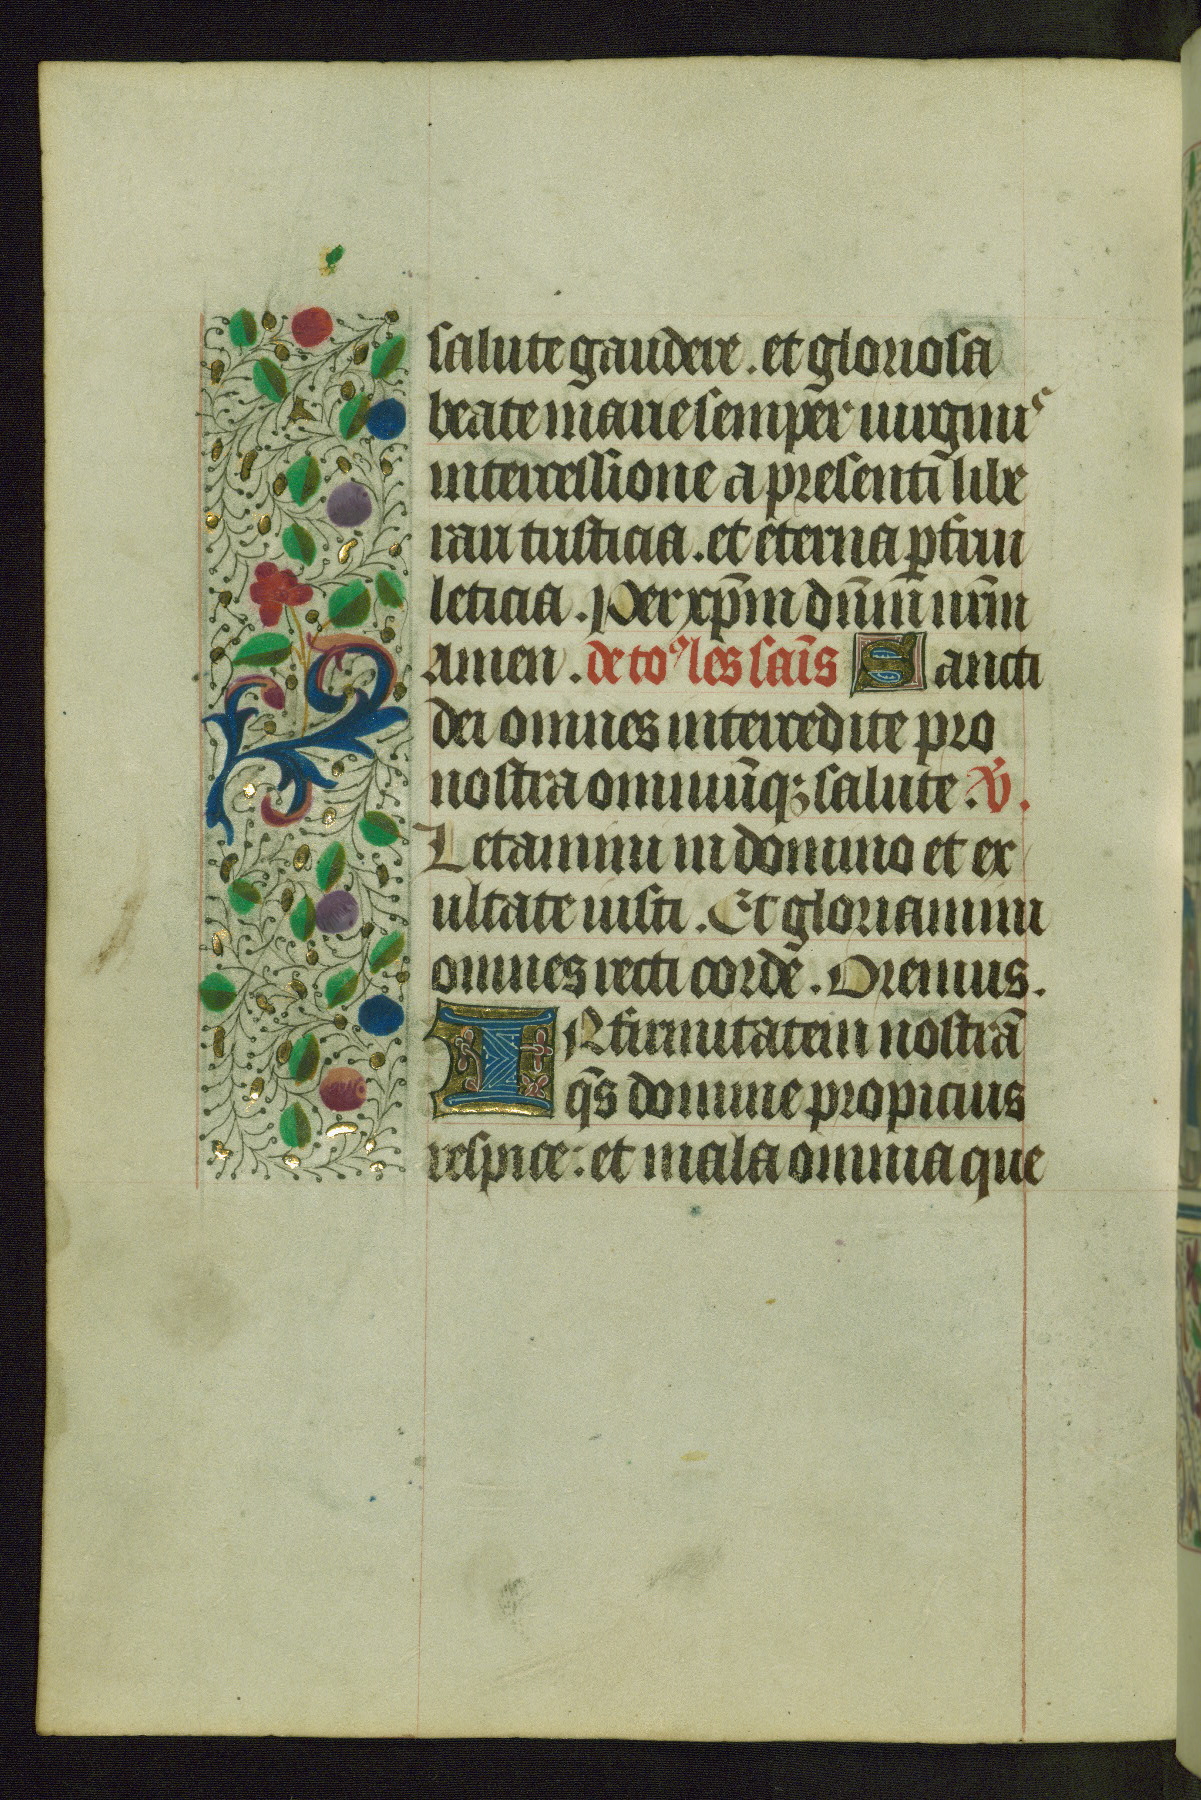 salute gaudere. et gloriosa
beate marie semper̄ uirginis
intercessione a presenti libe
rari tristicia. et eterna ꝑfrui
leticia. Per xp̄m dn̄m nr̄m
Amen. de toꝰ les sāīs Sancti
dei omnes intercedite pro
nostra omniūqꝫ salute. ℣.
Letamini in domino et ex
ultate iusti. Et gloriamini
omnes recti corde. Oremus.
INfirmitatem nostrā
q̄s domine propicius
respice: et mala omnia que